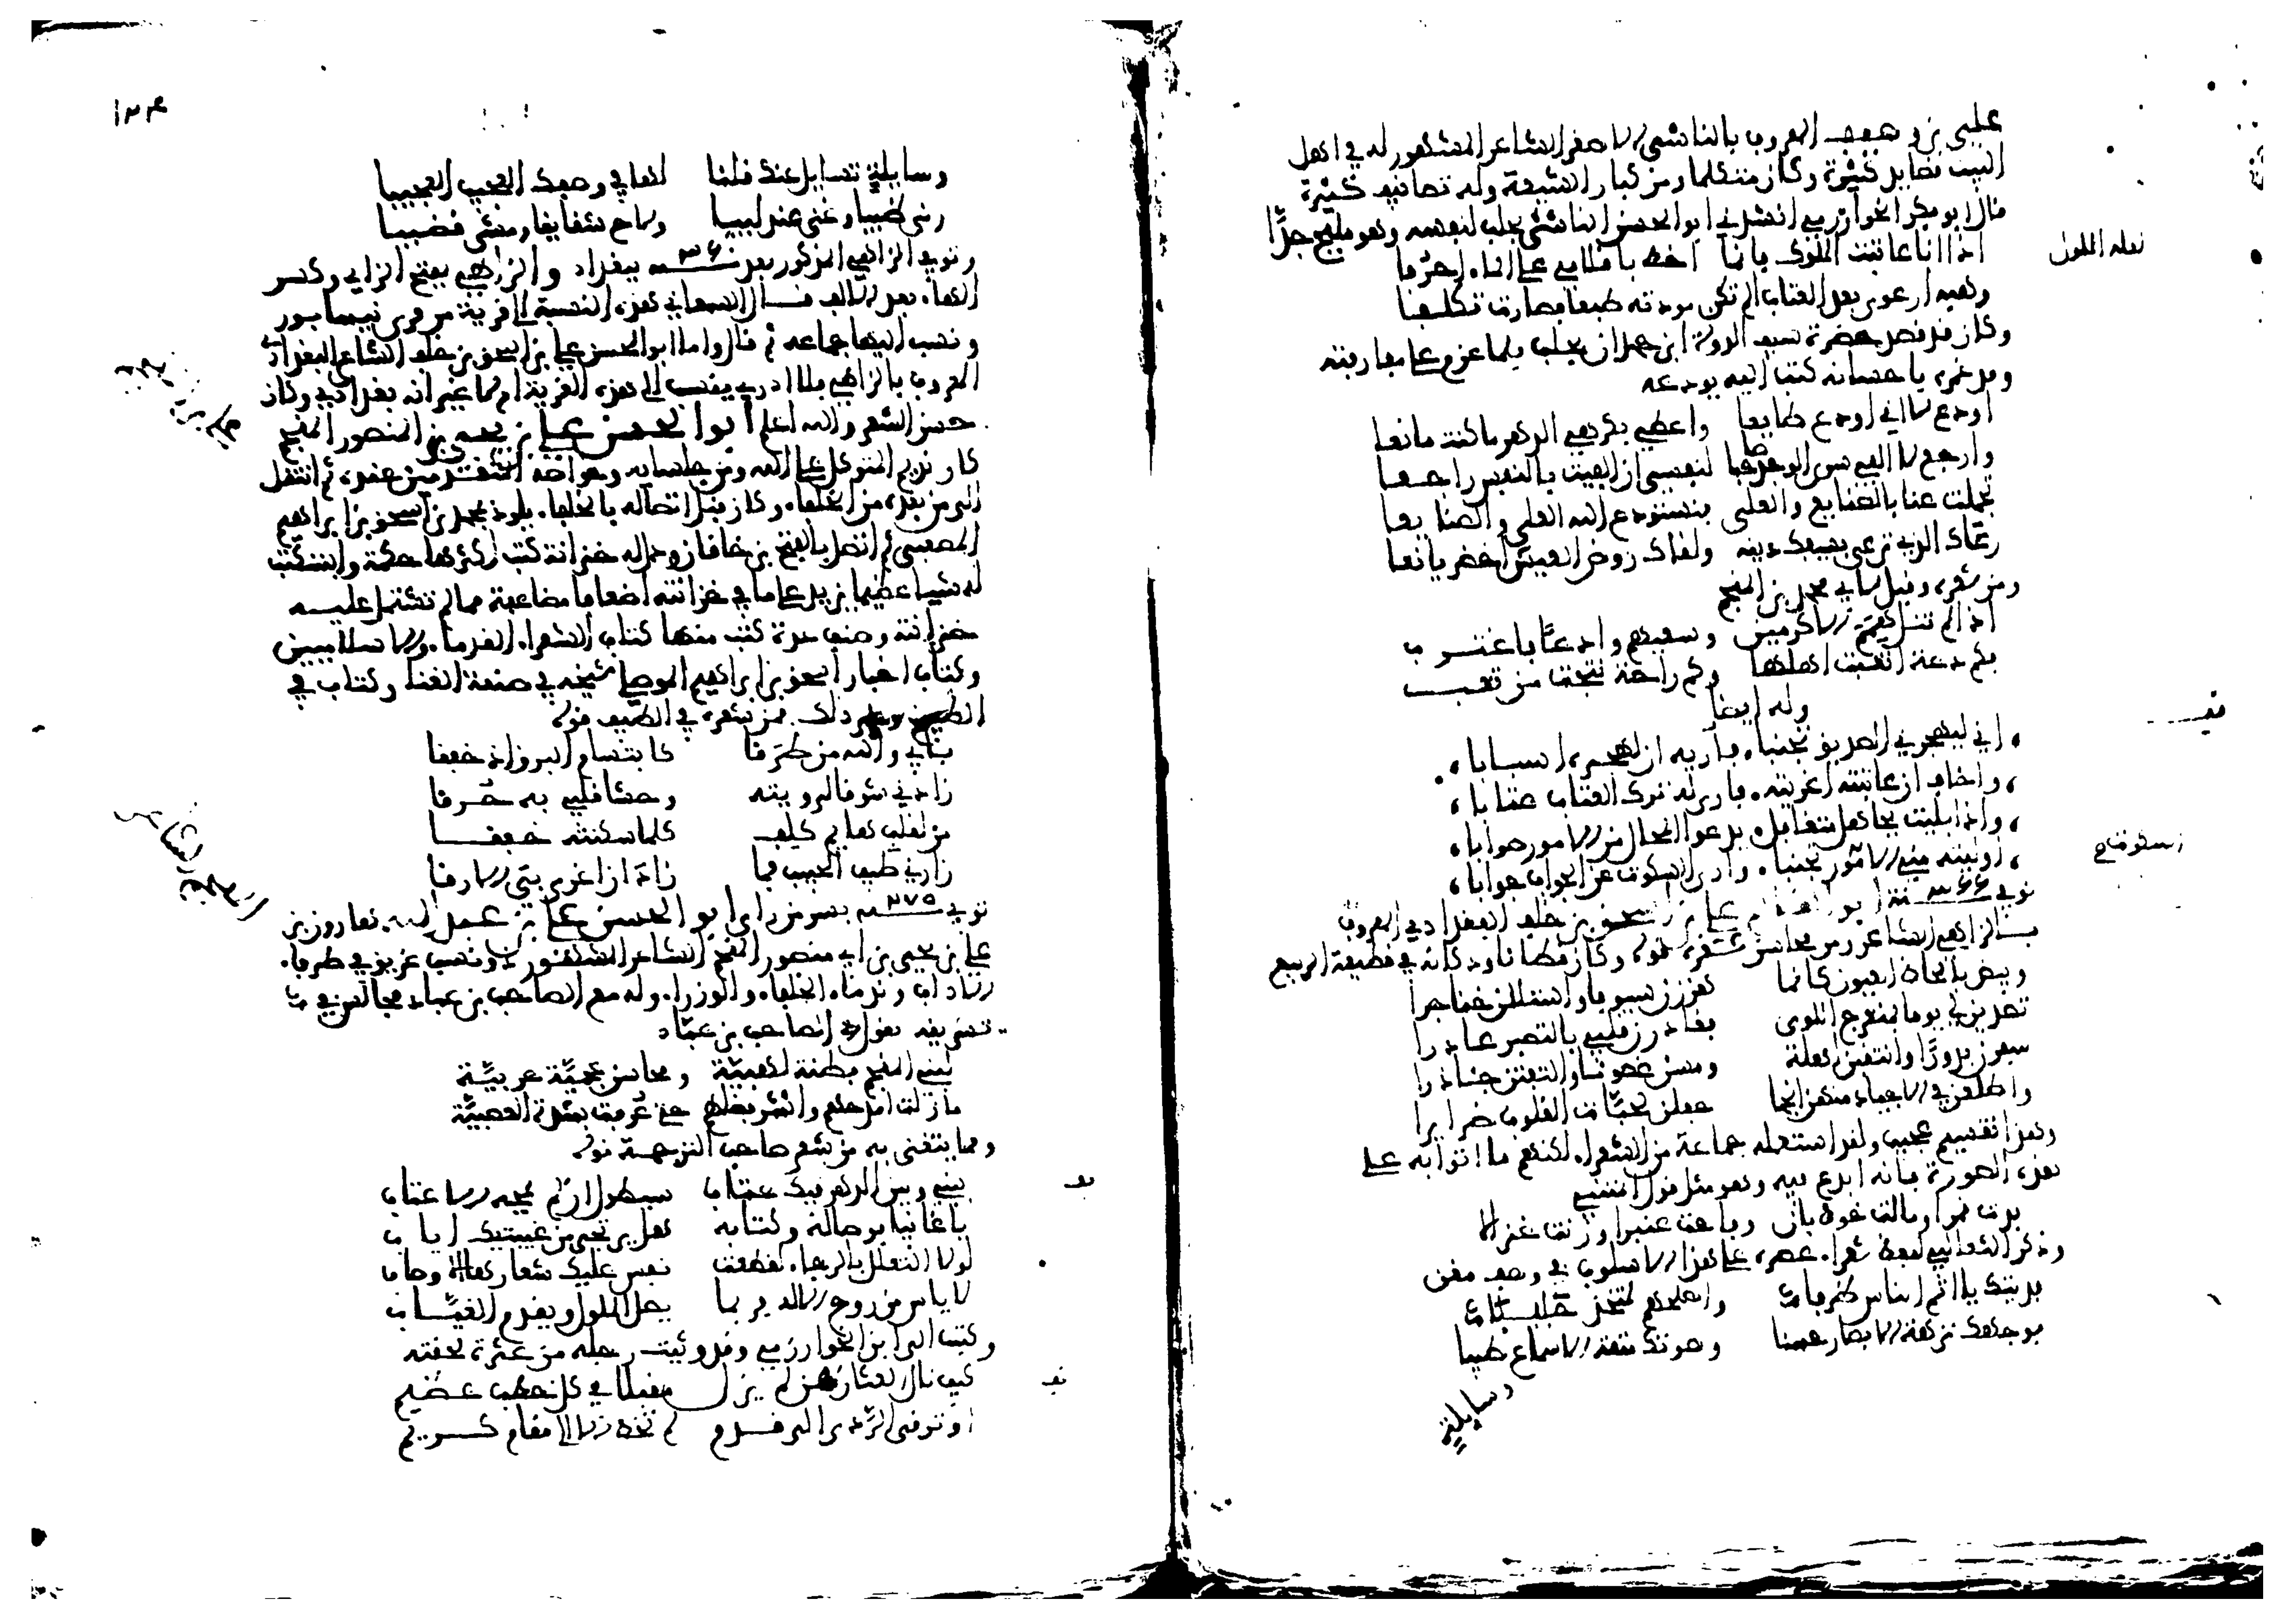 علي بن وصيف المعروف بالناشي الاصغر الشاعر المشهور له في اهل
البيت قصايد كثيرة وكان متكلما ومن كبار الشيعة وله تصانيف كثيرة
قال ابو بكر الخوارزمي انشدني ابو الحسن الناشي بحلب لنفسه وهو مليح جدًّا
اذا انا عاتبت الملوك فانما اخط باقلامي على الماء احرفا
وهبه ارعوى بعد العتاب الم تكن مودته طبعا فصارت تكلفا
وكان قد قصد حضرة سيف الدولة ابن حمدان بحلب فلما عزم على مفارقته
وقد غمره باحسانه كتب اليه يودعه
اودع لا اني اودع طايعا واعطي بكرهي الدهر ما كنت مانعا
وارجع لا الفي سوى الوجد صاحبا لنفسي ان الفيت بالنفس راجعا
تحملت عنا بالصنايع والعلى فنستودع الله العلى والصنايعا
رعاك الذي يرعى بسيفك دينه ولقاك روض العيش اخضر يانعا
ومن شعره وقيل لابي محمد بن المنجم
اذا لم تنل همم الاكرمين وسعيهم وادعًا فاغترب
فكم دعة اتعبت اهلها وكم راحة نتجت من تعب
وله ايضا
اني ليهجرني الصديق تجنبا فاريه ان لهجره اسبابا
واخاف ان عاتبته اغريته فارى له ترك العتاب عتابا
واذا بليت بجاهل متغافل يدعو المحال من الامور صوابا
اوليته مني السكوت وربما كان السكوت عن الجواب جوابا
توفي ٣٦٦ سنة ابو القاسم علي بن اسحق بن خلف البغدادي المعروف
بالزاهي الشاعر ومن محاسن شعره قوله وكان قطانا ودكانه في قطيعة الربيع
وبيض بالحاظ العيون كانما هززن سيوفا واستللن خناجرا
تصدين لي يوما بمنعرج اللوى فغادرن قلبي بالتصبر غادرا
سفرن بدورًا وانتقبن اهلة ومسن غصونا والتفتن جآذرا
واطلعن في الاجياد بالدر انجما جعلن لحبات القلوب ضرايرا
وهذا تقسيم عجيب ولقد استعمله جماعة من الشعراء لكنهم ما اتوا به على
هذه الصورة فانه ابدع فيه وهو مثل قول المتنبي
بدت قمرا ومالت خوط بان وفاحت عنبرا ورنت غزالا
وذكر الثعالبي لبعض شعراء عصره على هذا الاسلوب في وصف مغن
فديتك يا اتم الناس ظرفا واصلحهم لمتخذ حبيبا
فوجهك نزهة الابصار حسنا وصوتك متعة الاسماع طيبا
وسايلة
١٢٤
وسايلة تسايل عنك قلنا لها في وصفك العجب العجيبا
رنى ظبيا وغنى عندليبا ولاح شقايقا ومشى قضيبا
وتوفي الزاهي المذكور بعد ٣٦٠ سنة ببغداد والزاهي بفتح الزاي وكسر
الهاء بعد الالف قال السمعاني هذه النسبة الى قرية من قرى نيسابور
ونسب اليها جماعة ثم قال واما ابو الحسن علي بن اسحق بن خلف الشاعر البغدادي
المعروف بالزاهي فلا ادري ينسب الى هذه القرية ام لا غير انه بغدادي وكان
حسن الشعر والله اعلم ابو الحسن علي بن يحيى بن ابي المنصور المنجم
كان نديم المتوكل على الله ومن جلسايه وخواصه المتقدمين عنده ثم انتقل
الى من بعده من الخلفاء وكان قبل اتصاله بالخلفاء يلوذ بمحمد بن اسحق بن ابراهيم
المصعبي ثم اتصل بالفتح بن خاقان وعمل له خزانة كتب اكثرها حكمة واستكتب
له شيا عظيما يزيد على ما في خزانته اضعافا مضاعفة مما لم تشتمل عليه
خزانته وصنف عدة كتب منها كتاب الشعراء القدماء والاسلاميين
وكتاب اخبار اسحق بن ابراهيم الموصلي شيخه في صنعة الغنا وكتاب في
الطبيخ وغير ذلك فمن شعره في الطيف قوله
بابي والله من طرقا كابتسام البرق اذ خفقا
زادني شوقا لرويته وحشا قلبي به حرقا
من لقلب هايم كلف كلما سكنته خفقا
زارني طيف الحبيب فما زاد ان اغرى بي الارقا
توفي ٢٧٥ سنة بسر من راى ابو الحسن علي بن عبد الله هارون بن
علي بن يحيى بن ابي منصور المنجم الشاعر المشهور ونسب عريق في ظرفاء
الادب وندماء الخلفاء والوزراء وله مع الصاحب بن عباد مجالس في
تشريفه يقول الصاحب بن عبّاد
لبني المنجم فطنة لهبيّة ومحاسن عجميّة عربيّة
ما زلت امدحهم وانشر فضلهم حتى عرفت بشدة العصبيّة
ومما يتغنى به من شعر صاحب الترجمة قوله
بيني وبين الدهر فيك عتاب سيطول ان لم يمحه الاعتاب
يا غايبا بوصاله وكتابه هل يرتجى من غيبتيك اياب
لولا التعلل بالرجاء تقطعت نفس عليك شعارها الاوصاب
لا ياس من روح الاله فربما يصل الملول ويقدم الغياب
وكتب الى ابن الخوارزمي وقد وثيت رجله من عثرة لحقته
كيف نال العثار من لم يزل مقيلا في كل خطب عظيم
او ترقى الردى الى قدم لم تخط الا الى مقام كريم